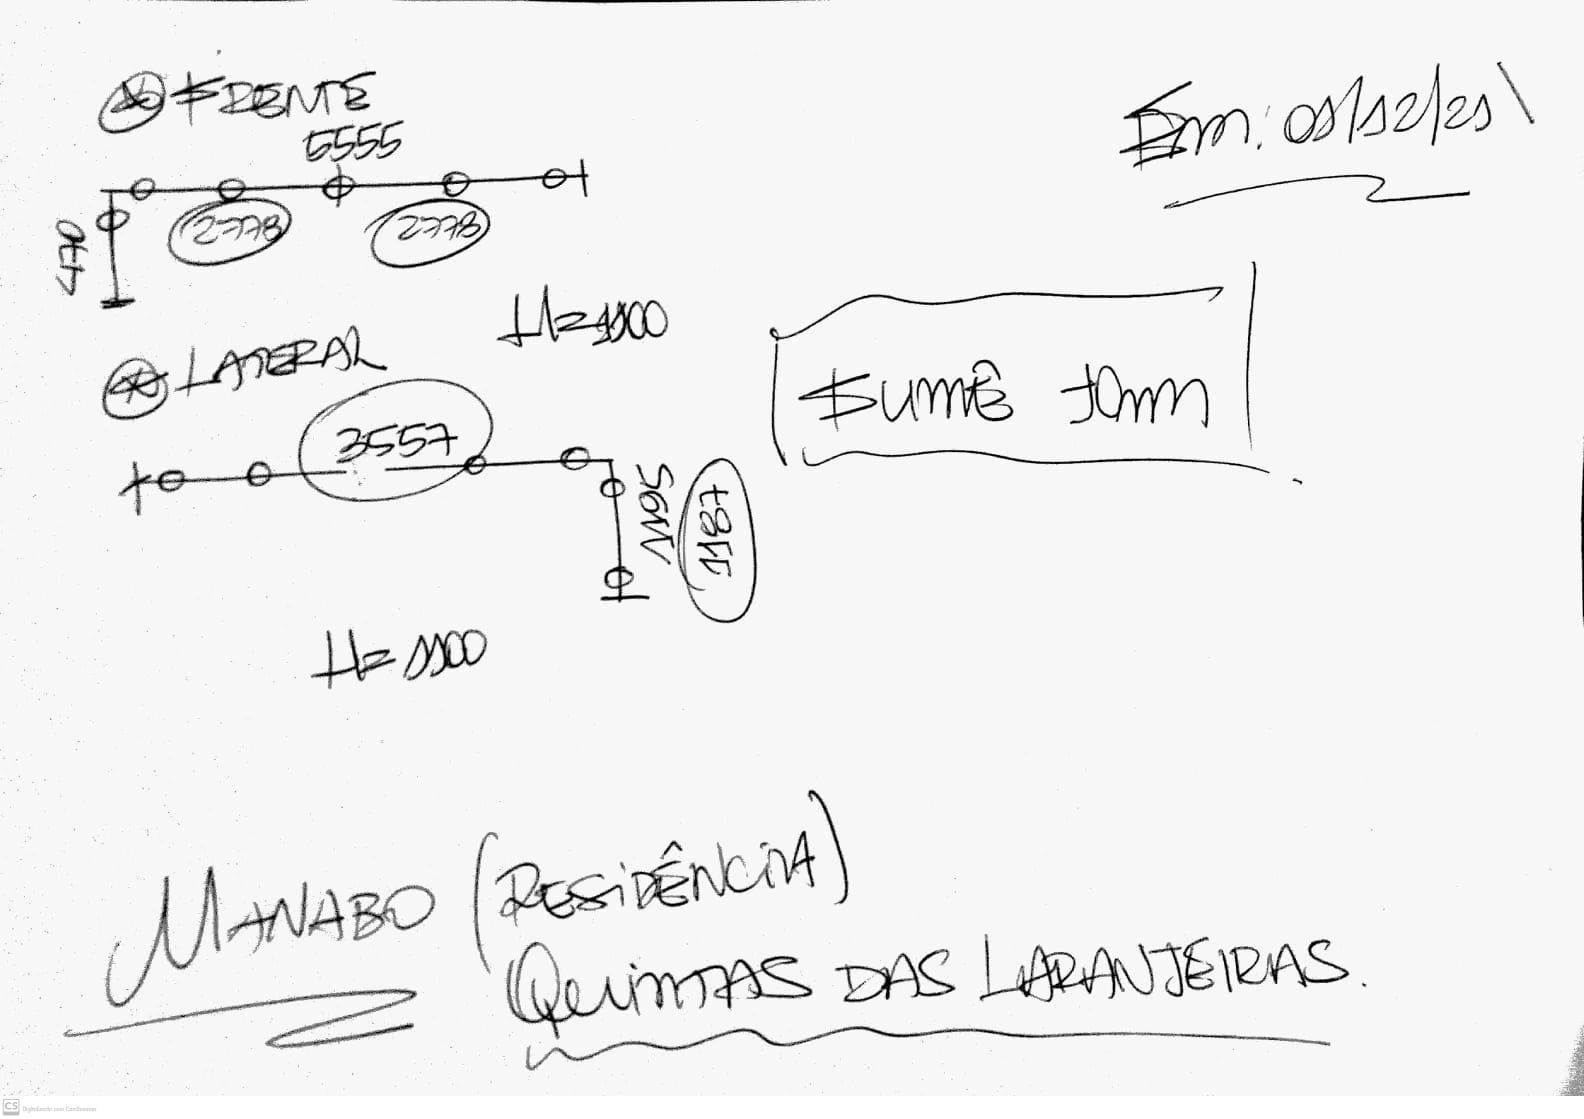 FRENTE
5555
2778
2778
470
H=1100
Em: 01/12/21
LATERAL
FUMÊ 10mm
3557
1195
1187
H=1100
MANABO (RESIDÊNCIA)
QUINTAS DAS LARANJEIRAS.
CS Digitalizado com CamScanner